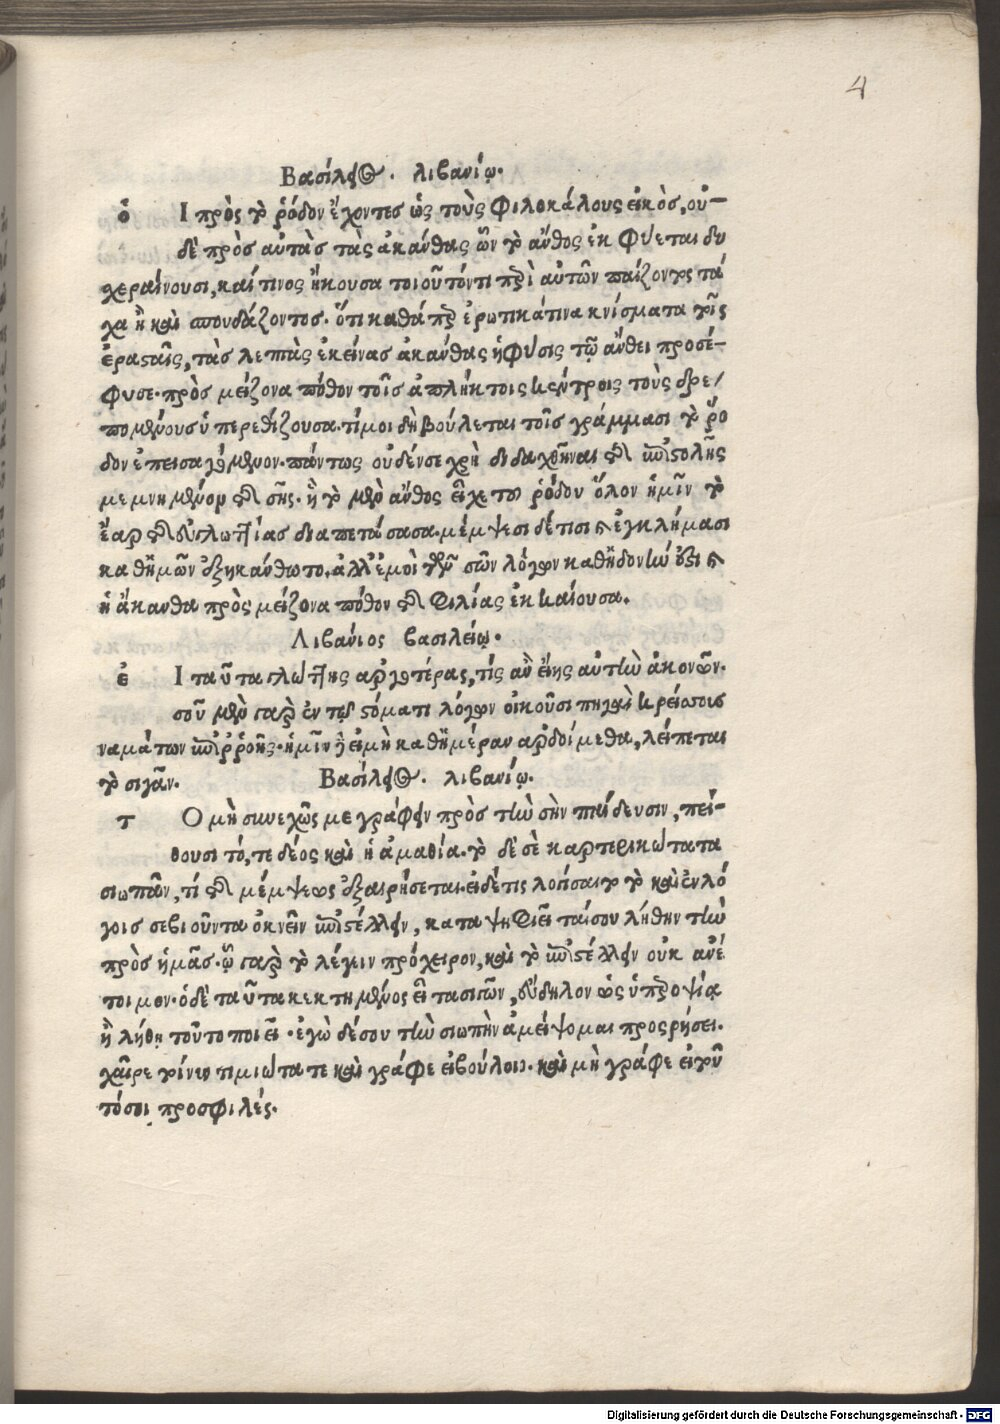 4
Βασίλειος. λιβανίῳ.
ὁ Ι πρὸς τὸ ῥόδον ἔχοντες ὡς τοὺς Φιλοκάλους εἰκὸς, οὐ-
δὲ πρὸς αὐτὰς τὰς ἀκάνθας ὧν τὸ ἄνθος ἐκ Φύεται δυ
χεραίνουσι, καί τινος ἤκουσα τοιοῦτόν τι περὶ αὐτῶν παίζοντος τά
χα ἢ καὶ σπουδάζοντος. ὅτι καθάπερ ἐρωτικά τινα κνίσματα τοῖς
ἐρασταῖς, τὰς λεπτὰς ἐκείνας ἀκάνθας ἡ φύσις τῷ ἄνθει προσέ-
φυσε. πρὸς μείζονα πόθον τοῖς ἀπλήκτοις κέντροις τοὺς δρε/
πομένους ὑπερεθίζουσα. τί μοι δὴ βούλεται τοῖς γράμμασι τὸ ῥό
δον ἐπεισαγόμενον. πάντως οὐδέν σε χρὴ διδαχθῆναι τῆς ἐπιστολῆς
μεμνημένον τῆς σῆς. ἢ τὸ μὲν ἄνθος εἶχε τοῦ ῥόδου ὅλον ἡμῖν τὸ
ἔαρ τῆς εὐγλωττίας διαπετάσασα. μέμψεσι δέ τισι καὶ ἐγκλήμασι
καθ' ἡμῶν ἐξηκάνθωτο. ἀλλ' ἐμοὶ τῶν σῶν λόγων καθ' ἡδονήν ἐστι καὶ
ἡ ἄκανθα πρὸς μείζονα πόθον τῆς Φιλίας ἐκκαίουσα.
Λιβάνιος βασιλείῳ.
ἐ Ι ταῦτα γλώττης ἀργοτέρας, τίς ἂν εἴης αὐτὴν ἀκονῶν.
σοῦ μὲν γὰρ ἐν τῷ στόματι λόγων οἰκοῦσι πηγαὶ κρείττους
ναμάτων ἐπιρροῆς. ἡμῖν δὲ εἰ μὴ καθ' ἡμέραν ἀρδοίμεθα, λείπεται
τὸ σιγᾶν. Βασίλειος. λιβανίῳ.
τ Ὸ μὴ συνεχῶς με γράφειν πρὸς τὴν σὴν παίδευσιν, πεί-
θουσι τό, τε δέος καὶ ἡ ἀμαθία. τὸ δὲ σὲ καρτερικώτατα
σιωπᾶν, τί τῆς μέμψεως ἐξαιρήσεται. εἰ δέ τις λογίσαιτο τὸ καὶ ἐν λό
γοις σε βιοῦντα ὀκνεῖν ἐπιστέλλειν, καταψηφιεῖταί σου λήθην τὴν
πρὸς ἡμᾶς. ᾧ γὰρ τὸ λέγειν πρόχειρον, καὶ τὸ ἐπιστέλλειν οὐκ ἀνέ
τοιμον. ὁ δὲ ταῦτα κεκτημένος εἶτα σιγῶν, εὔδηλον ὡς ὑπεροψίᾳ
ἢ λήθῃ τοῦτο ποιεῖ. ἐγὼ δέ σου τὴν σιωπὴν ἀμείψομαι προσρήσει.
χαῖρε τοίνυν τιμιώτατε καὶ γράφε εἰ βούλοιο. καὶ μὴ γράφε εἰ τοῦ
τό σοι προσφιλές.
Digitalisierung gefördert durch die Deutsche Forschungsgemeinschaft - DFG